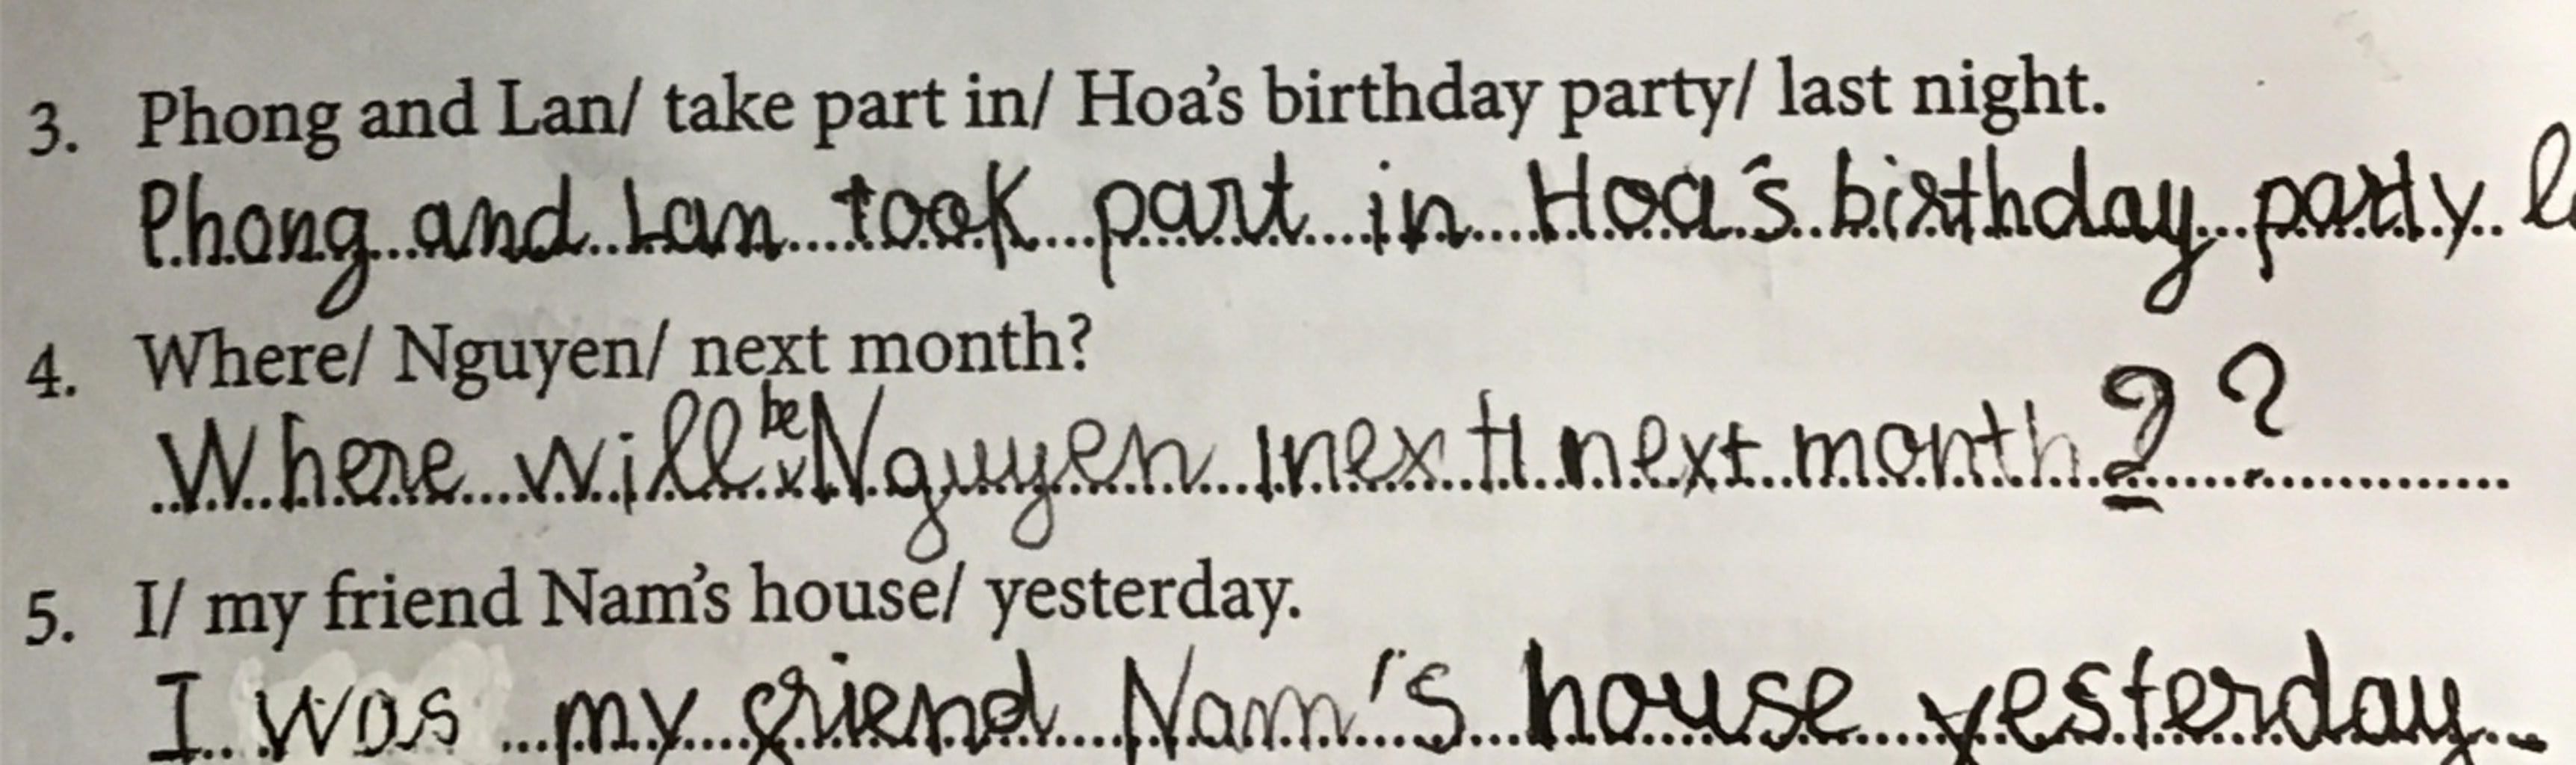 3. Phong and Lan/ take part in/ Hoa's birthday party/ last night.
Phong and Lan took part in Hoa's birthday party
4. Where/ Nguyen/ next month?
Where will be Nguyen next next month? ?
5. I/ my friend Nam's house/ yesterday.
I was my friend Nam's house yesterday.